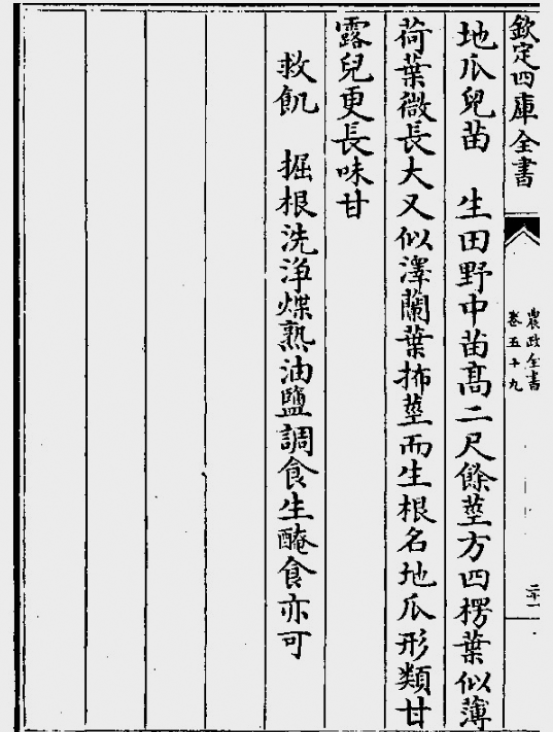 欽定四庫全書
農政全書
卷五十九
二十一
地瓜兒苗　生田野中苗髙二尺餘莖方四楞葉似薄
荷葉微長大又似澤蘭葉抪莖而生根名地瓜形類甘
露兒更長味甘
救飢　掘根洗淨煠熟油鹽調食生醃食亦可